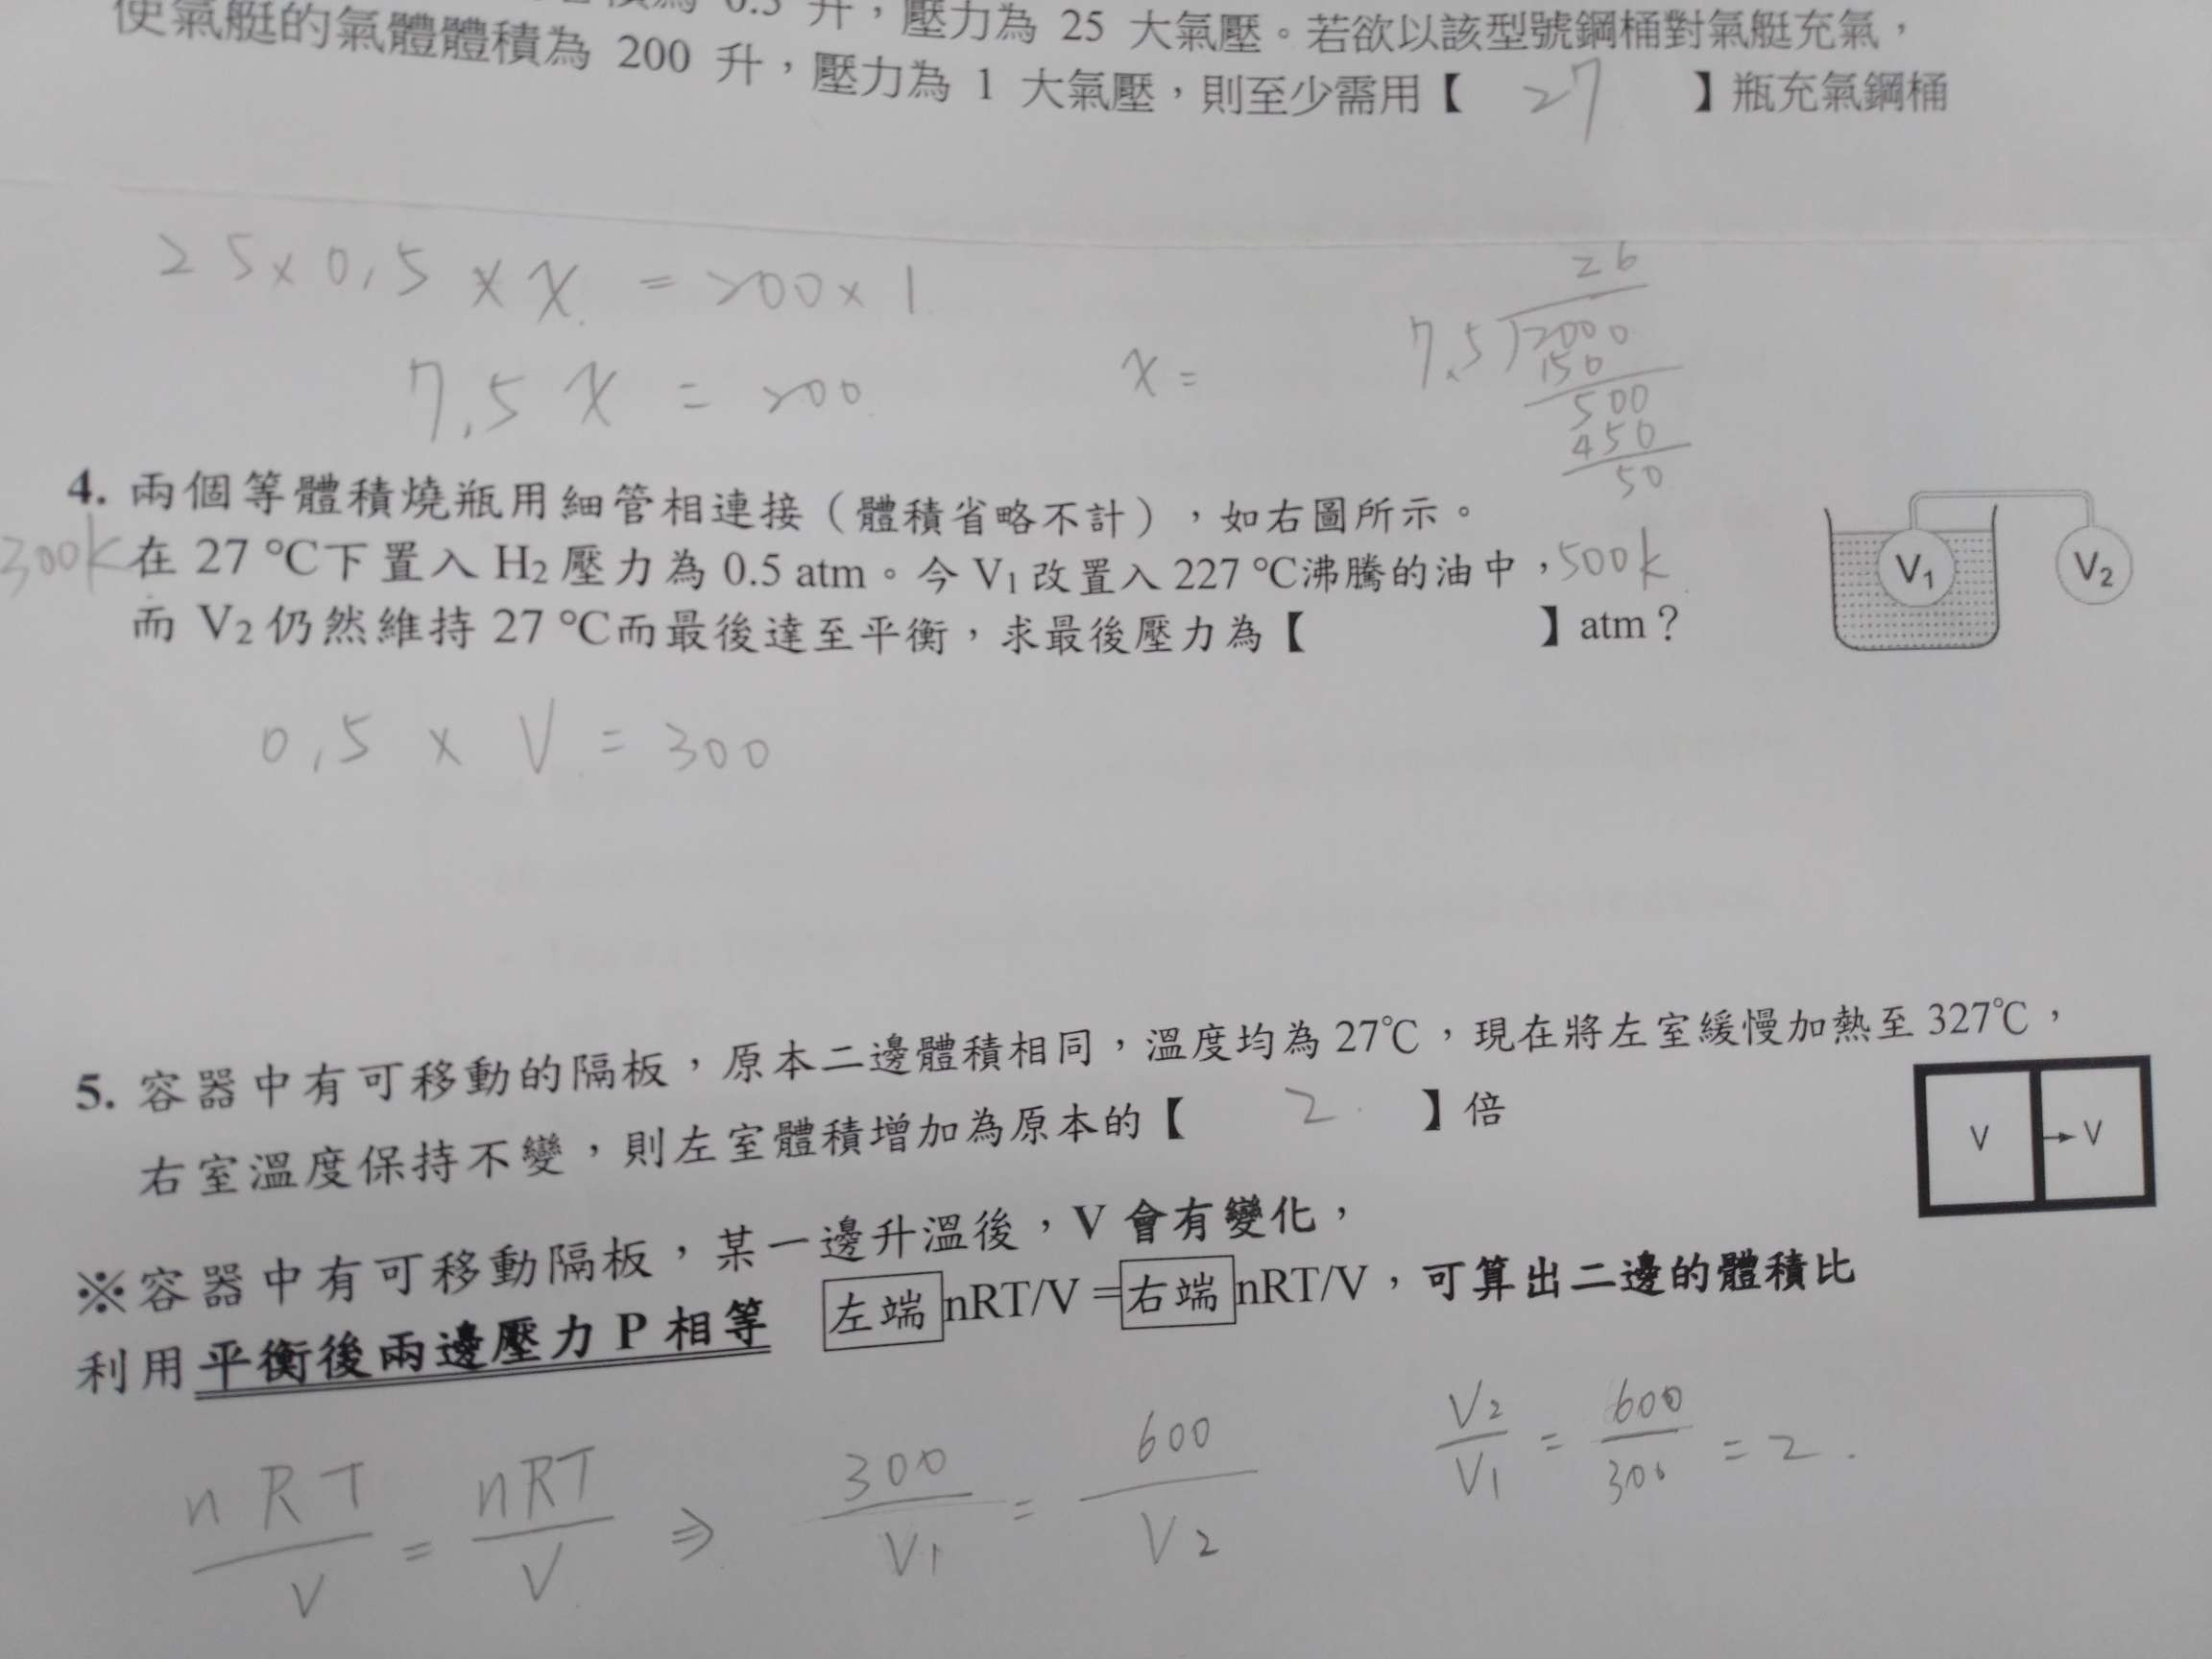 0.5 升，壓力為 25 大氣壓。若欲以該型號鋼桶對氣艇充氣，
使氣艇的氣體體積為 200 升，壓力為 1 大氣壓，則至少需用【 27 】瓶充氣鋼桶
25×0.5×x = 200×1
7.5x = 200
x =
26
7.5)2000
150
500
450
50
4. 兩個等體積燒瓶用細管相連接（體積省略不計），如右圖所示。
300k 在 27 ℃下置入 H₂ 壓力為 0.5 atm。今 V₁ 改置入 227 ℃沸騰的油中，500k
而 V₂ 仍然維持 27 ℃而最後達至平衡，求最後壓力為【 】atm？
V₁ V₂
0.5 × V = 300
5. 容器中有可移動的隔板，原本二邊體積相同，溫度均為 27℃，現在將左室緩慢加熱至 327℃，
右室溫度保持不變，則左室體積增加為原本的【 2 】倍
V → V
※容器中有可移動隔板，某一邊升溫後，V 會有變化，
利用平衡後兩邊壓力 P 相等 左端 nRT/V = 右端 nRT/V，可算出二邊的體積比
nRT/V = nRT/V ⇒ 300/V1 = 600/V2
V2/V1 = 600/300 = 2.